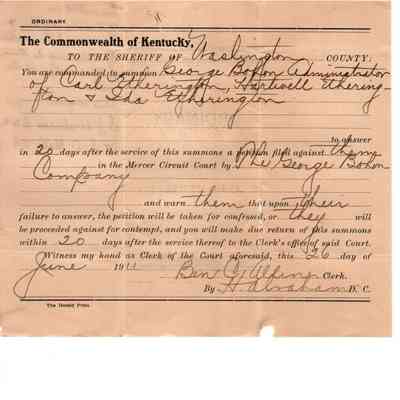 ORDINARY.
The Commonwealth of Kentucky,
TO THE SHERIFF OF Washington COUNTY:
You are commanded to summon George Bohon Administrator
of Carl Etherington, Hartwell Ethering-
ton & Ida Etherington
to answer
in 20 days after the service of this summons a petition filed against them
in the Mercer Circuit Court by The George Bohon
Company
and warn them that upon their
failure to answer, the petition will be taken for confessed, or they will
be proceeded against for contempt, and you will make due return of this summons
within 20 days after the service thereof to the Clerk's office of said Court.
Witness my hand as Clerk of the Court aforesaid, this 26 day of
June 1911 Ben C. Allin Clerk.
By H. Abraham D. C.
The Herald Press.